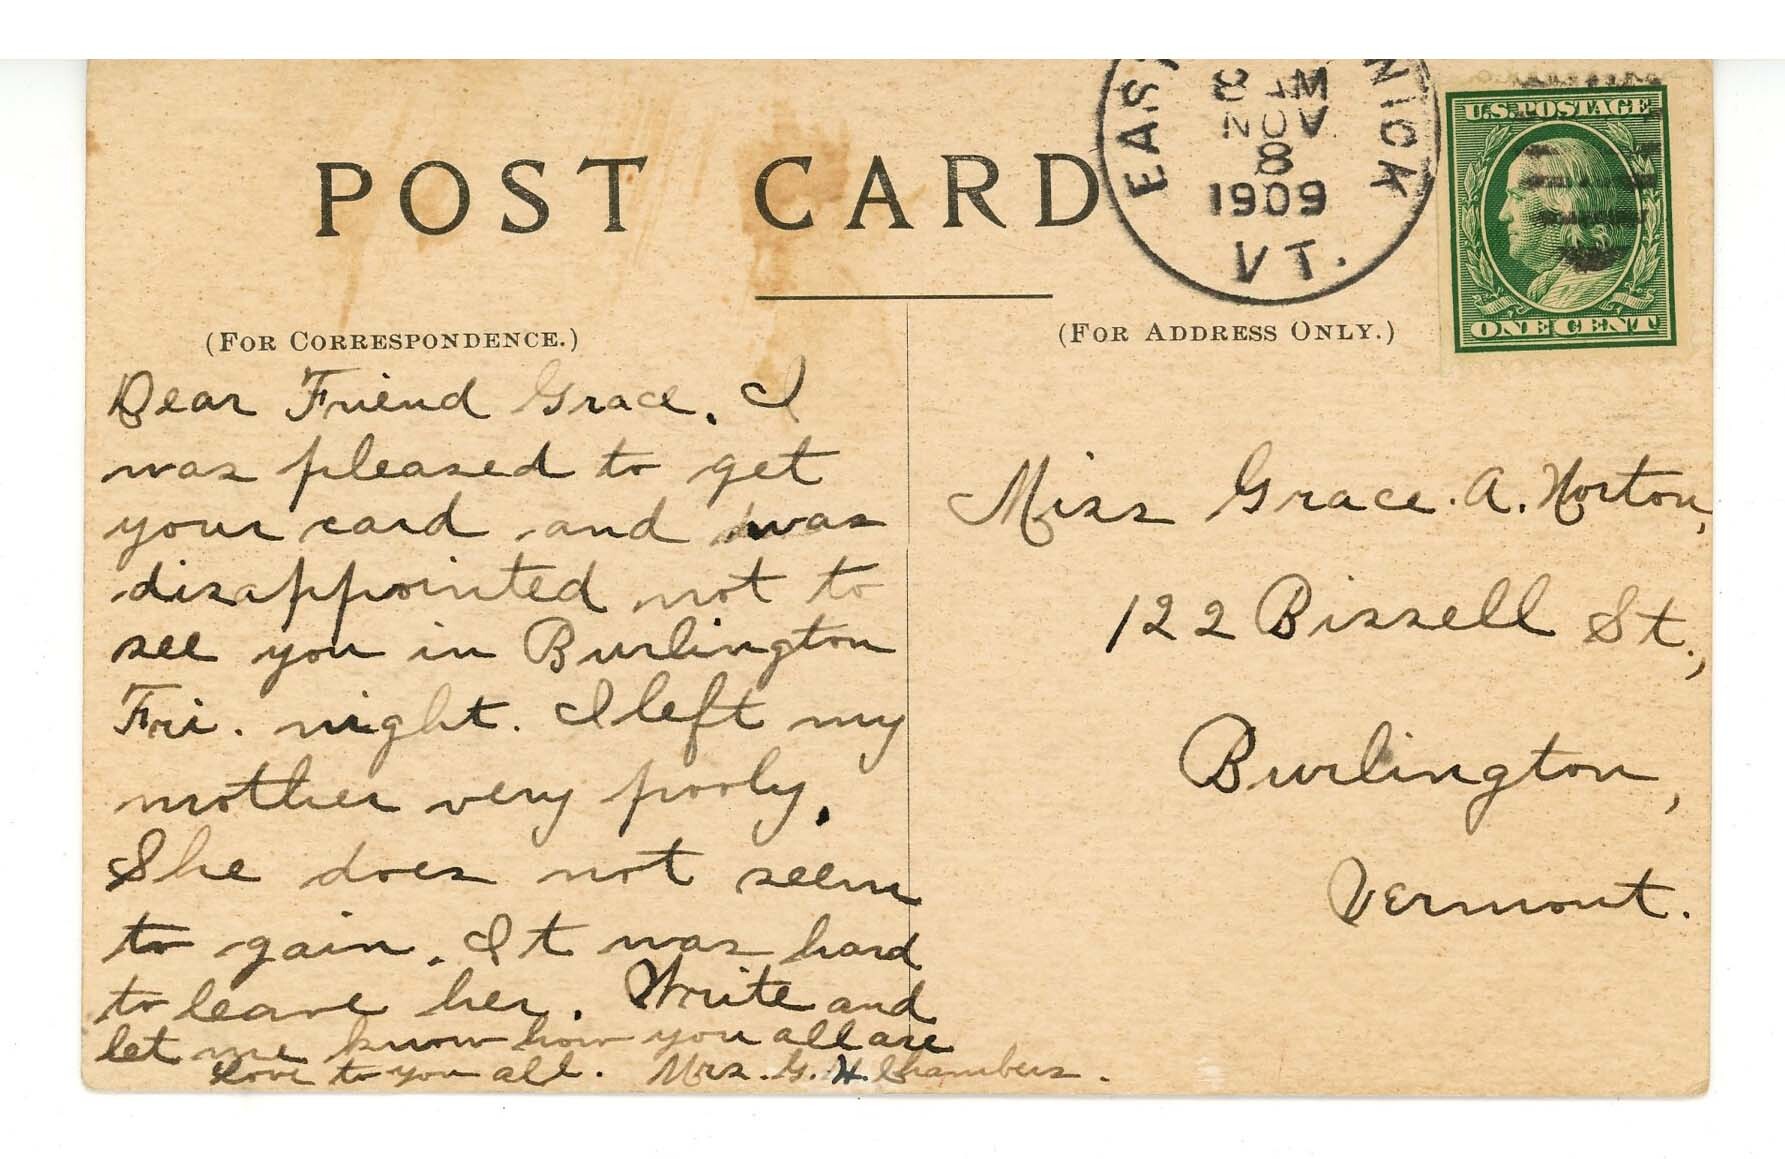 POST CARD
EAS NICK
8 AM
NOV
8
1909
VT.
U.S. POSTAGE
ONE CENT
(FOR CORRESPONDENCE.)
(FOR ADDRESS ONLY.)
Dear Friend Grace. I
was pleased to get
your card and was
disappointed not to
see you in Burlington
Fri. night. I left my
mother very pooly.
She does not seem
to gain. It was hard
to leave her. Write and
let me know how you all are
Love to you all. Mrs. G. H. Chambers.
Miss Grace. A. Norton,
122 Bissell St.,
Burlington,
Vermont.